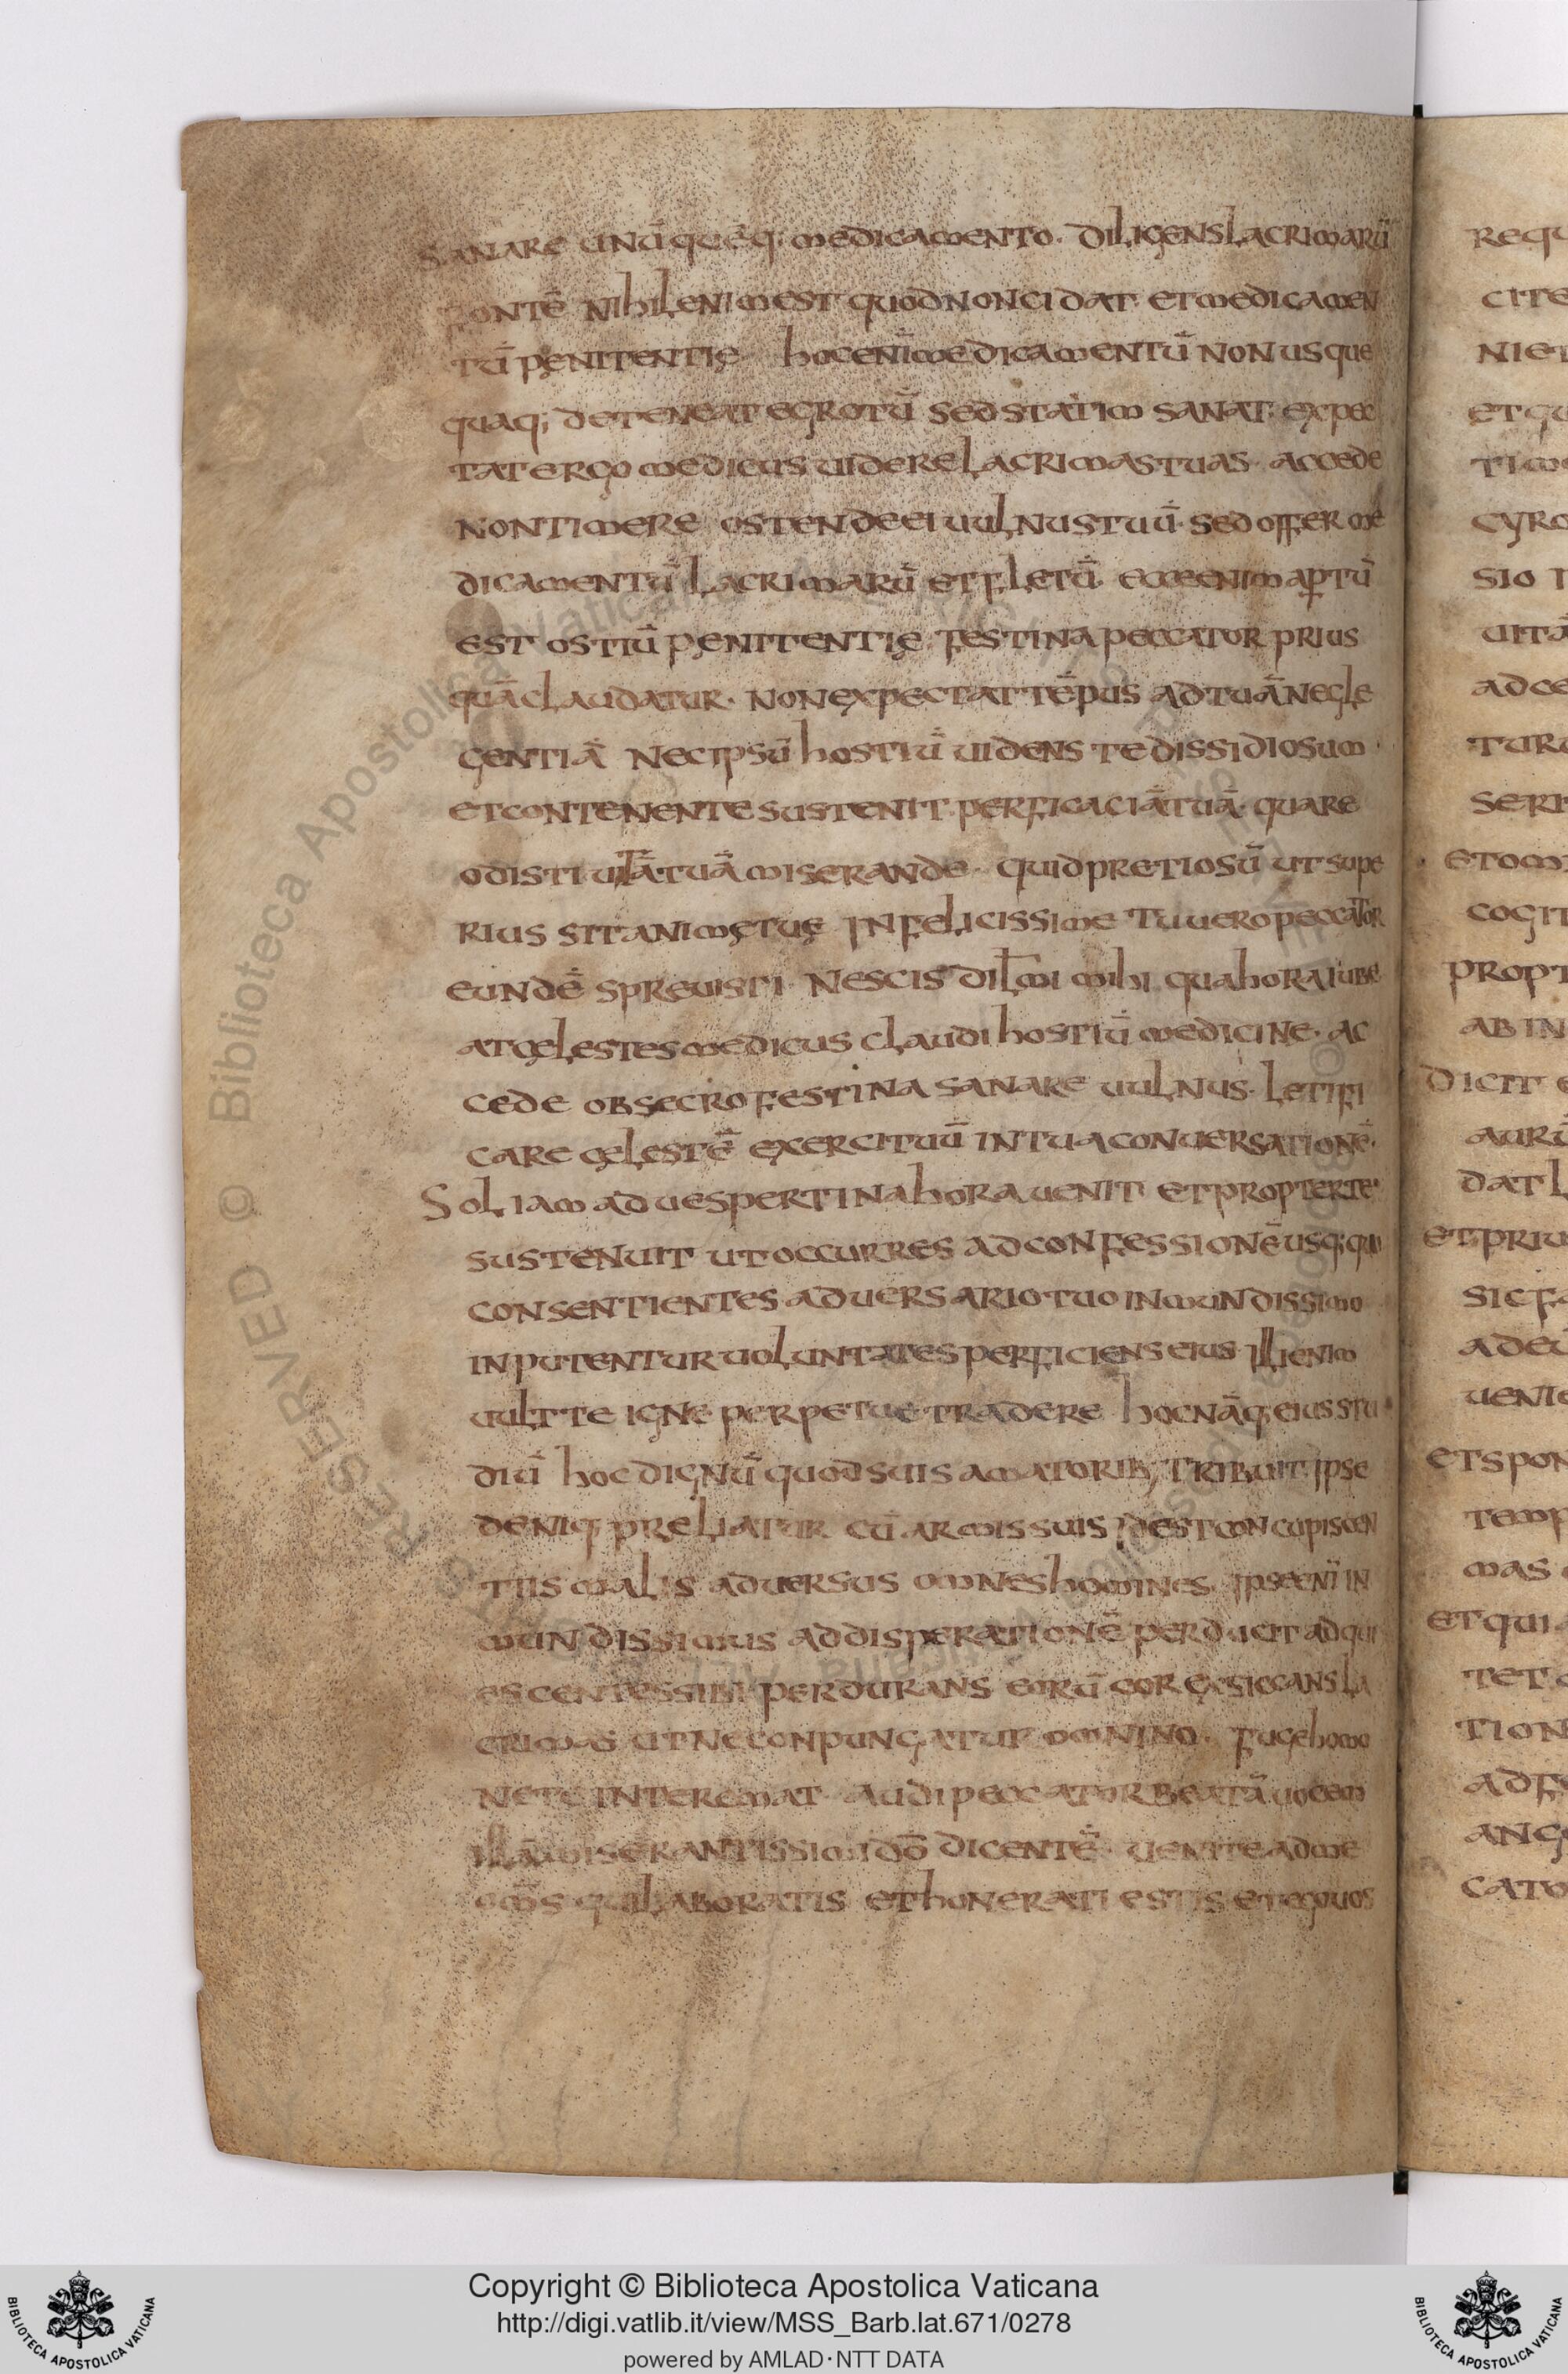 sanare unū quēq; medicamento· diligens lacrimarū
fontē nihil enim est quod non cidat· et medicamen
tū penitentię· hoc enī medicamentū non usque
quaq; deteneat egrotū sed statim sanat· expec
tat ergo medicus uidere lacrimas tuas· accede
non timere ostende ei uulnus tuū· sed offer me
dicamentū lacrimarū et fletū· ecce enim aptū
est ostiū penitentię· festina peccator prius
quā claudatur· non expectat tēpus ad tuā negle
gentiā nec ipsū hostiū uidens te dissidiosum·
et contenente sustenit perficaciā tuā· quare
odisti uitā tuā miserande· quid pretiosū ut supe
rius sit animę tuę infelicissime tu uero peccator
eundē spreuisti· nescis dilmi mihi qua hora iube
at cęlestes medicus claudi hostiū medicine· ac
cede obsecro festina sanare uulnus· letifi
care cęlestē exercituū in tua conuersationē·
Sol iam ad uespertina hora uenit et propter te·
sustenuit ut occurres ad confessionē usq; quo
consentientes aduersario tuo inmundissimo
inputentur uoluntates perficiens eius· illi enim
uult te igne perpetue tradere hoc nāq; eius stu
diū hoc dignū quod suis amatorib; tribuit· ipse
deniq; preliatur cū armis suis idest concupiscen
tiis malis aduersus omnes homines· ipse enī in
mundissimus ad disperationē perducit ad qui
escentes sibi perdurans eorū cor exsiccans la
crimas ut ne conpungatur omnino· fuge homo
ne te interemat· audi peccator beatā uocem
illā miserantissimi dō dicentē· uenite ad me
om̄s qui laboratis et honerati estis et ego uos
requ
cite
niet
et qu
time
cyro
sio
uita
adce
turu
seri
etom
cogit
propt
ab in
dicit
aurū
dat l
et priu
sic fa
adeu
uenie
et spon
temp
mas
et qui
tet
tion
adfe
ange
cato
© Biblioteca Apostolica Vaticana
RESERVED
Copyright © Biblioteca Apostolica Vaticana
http://digi.vatlib.it/view/MSS_Barb.lat.671/0278
powered by AMLAD·NTT DATA
BIBLIOTECA APOSTOLICA VATICANA
BIBLIOTECA APOSTOLICA VATICANA